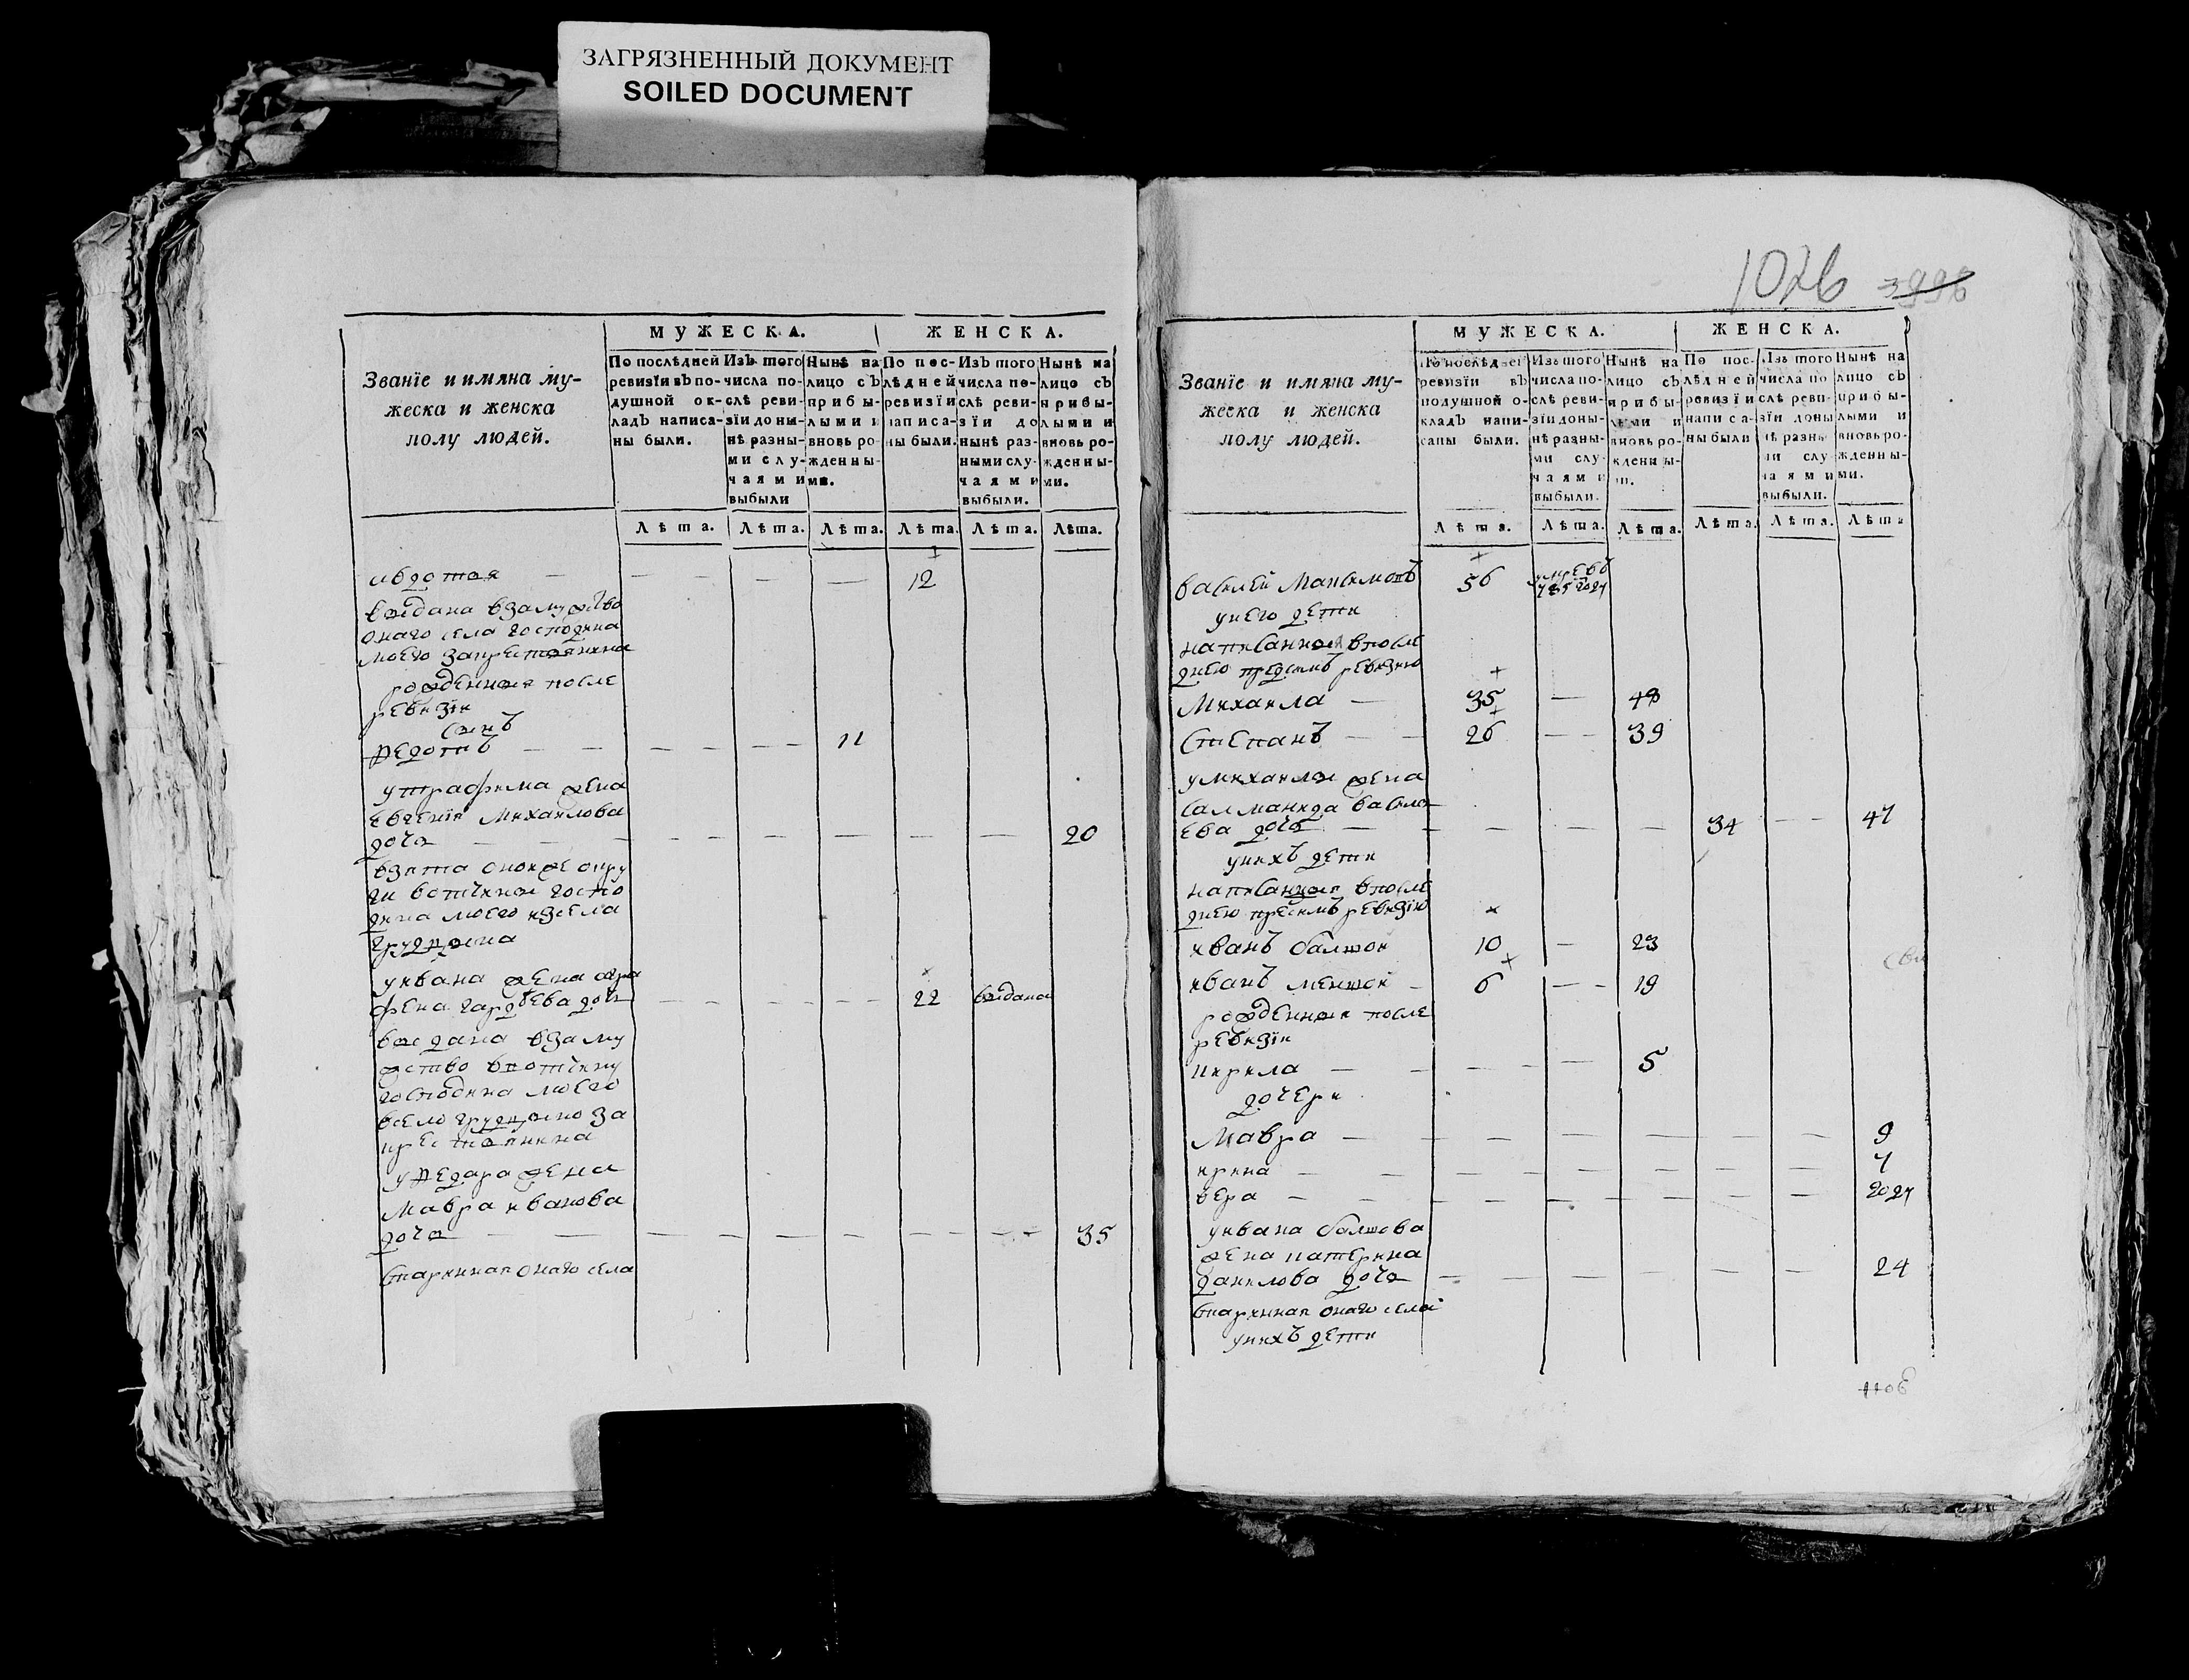 ЗАГРЯЗНЕННЫЙ ДОКУМЕНТ
SOILED DOCUMENT
Званїе и имяна му-
жеска и женска
полу людей.
МУЖЕСКА.
ЖЕНСКА.
По послѣдней
ревизїи въ по-
душной ок-
ладъ написа-
ны были.
Изъ того
числа по-
слѣ реви-
зїи доны-
нѣ разны-
ми слу-
чаями
выбыли
Нынѣ на
лицо съ
прибы-
лыми и
вновь ро-
жденны-
ми.
По пос-
лѣдней
ревизїи
написа-
ны были.
Изъ того
числа по-
слѣ реви-
зїи до
нынѣ раз-
ными слу-
чаями
выбыли.
Нынѣ на
лицо съ
прибы-
лыми и
вновь ро-
жденны-
ми.
Лѣта. Лѣта. Лѣта. Лѣта. Лѣта. Лѣта.
авдотья — — — — 12
выдана взамужство
онаго села господина
моего закрестьянина
рожденныя после
ревизїи
сынъ
Ѳедотъ — — — — 11
утрафима жена
евгенїя Михаилова
дочь — — — — — — 20
взята оной же окру
ги вотчины госпо
дина моего изсела
уивана жена агра
фена гордѣева дочь — — — 22 выдана
выдана взаму
жство вотчину
господина моего
за
крестьянина
уѲедора жена
Мавра иванова
дочь — — — — — — 35
старинная онаго села
1026 3996
Званїе и имяна му-
жеска и женска
полу людей.
МУЖЕСКА.
ЖЕНСКА.
По послѣдней
ревизїи въ
подушной о-
кладъ напи-
саны были.
Изъ того
числа по-
слѣ реви-
зїи доны-
нѣ разны-
ми слу-
чаями
выбыли.
Нынѣ на
лицо съ
прибы-
лыми и
вновь ро-
жденны-
ми.
По пос-
лѣдней
ревизїи
написа-
ны были
Изъ того
числа по
слѣ реви-
зїи доны
нѣ разны
ми слу
чаями
выбыли.
Нынѣ на
лицо съ
прибы-
лыми и
вновь ро-
жденны-
ми.
Лѣта. Лѣта. Лѣта. Лѣта. Лѣта. Лѣта
василей Максимовъ 56 умре въ
785 году
унего дети
написанныя впосле
днею предсимъ ревизию
Михаила — 35 — 48
Степанъ — — 26 — — 39
умихаилы жена
саломанида василь
ева дочь — — — — — 34 — — 47
унихъ дети
написанныя впосле
днею пресимъ ревизїю
иванъ болшои 10 — 23
иванъ меншои — 6 — — 19
рожденныя после
ревизїи
кирила — — — — — 5
дочери
Мавра — — — — — — — 9
ирина — — — — — — — 7
вера — — — — — — — году
уивана болшова
жена катерина
данилова дочь — — — — — — 24
старинная онаго села
унихъ дети
1106